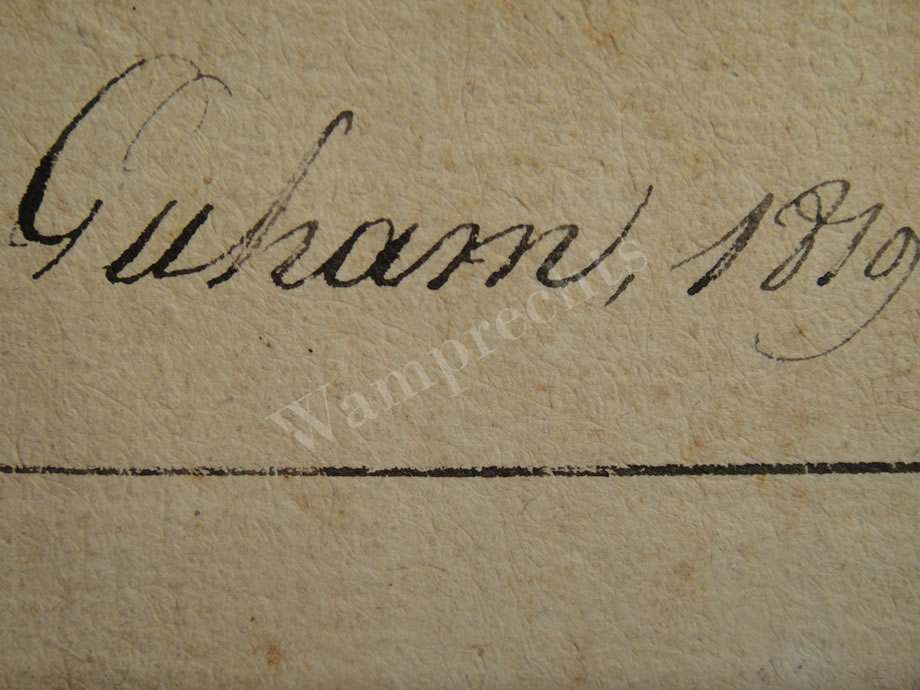 Guham, 1819
Wamprechts